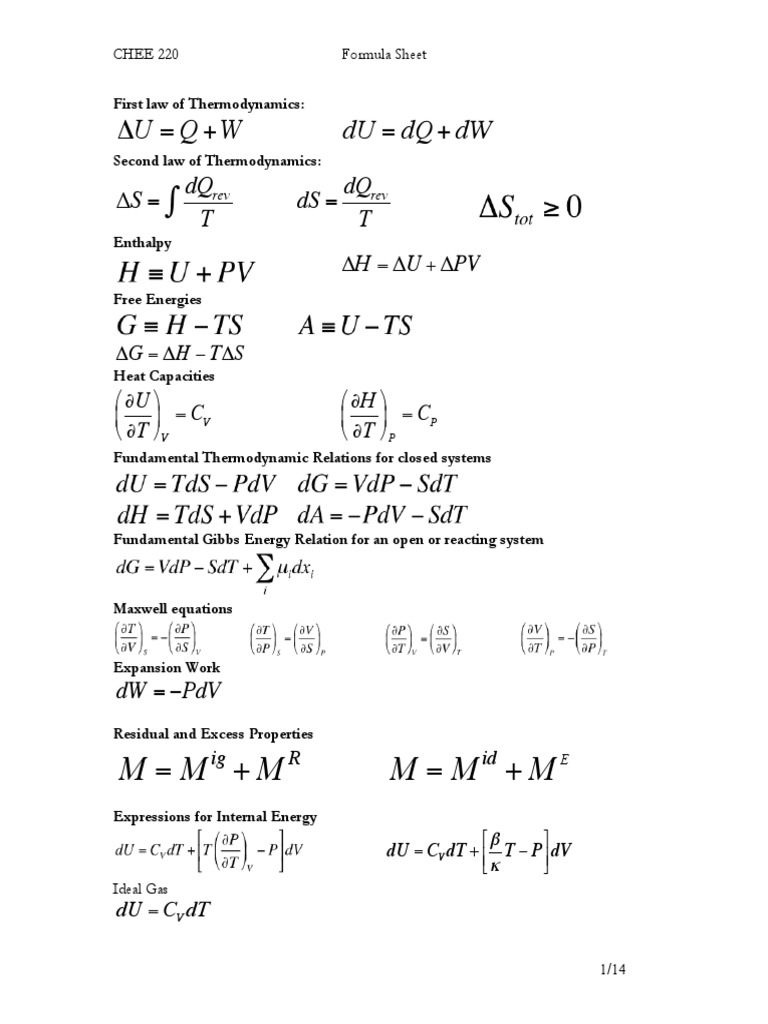 CHEE 220 Formula Sheet
First law of Thermodynamics:
ΔU = Q + W dU = dQ + dW
Second law of Thermodynamics:
ΔS = ∫ dQ_rev / T dS = dQ_rev / T ΔS_tot ≥ 0
Enthalpy
H ≡ U + PV ΔH = ΔU + ΔPV
Free Energies
G ≡ H − TS A ≡ U − TS
ΔG = ΔH − TΔS
Heat Capacities
(∂U/∂T)_V = C_V (∂H/∂T)_P = C_P
Fundamental Thermodynamic Relations for closed systems
dU = TdS − PdV dG = VdP − SdT
dH = TdS + VdP dA = −PdV − SdT
Fundamental Gibbs Energy Relation for an open or reacting system
dG = VdP − SdT + ∑_i μ_i dx_i
Maxwell equations
(∂T/∂V)_S = −(∂P/∂S)_V (∂T/∂P)_S = (∂V/∂S)_P (∂P/∂T)_V = (∂S/∂V)_T (∂V/∂T)_P = −(∂S/∂P)_T
Expansion Work
dW = −PdV
Residual and Excess Properties
M = M^ig + M^R M = M^id + M^E
Expressions for Internal Energy
dU = C_V dT + [T(∂P/∂T)_V − P]dV dU = C_V dT + [β/κ T − P]dV
Ideal Gas
dU = C_V dT
1/14